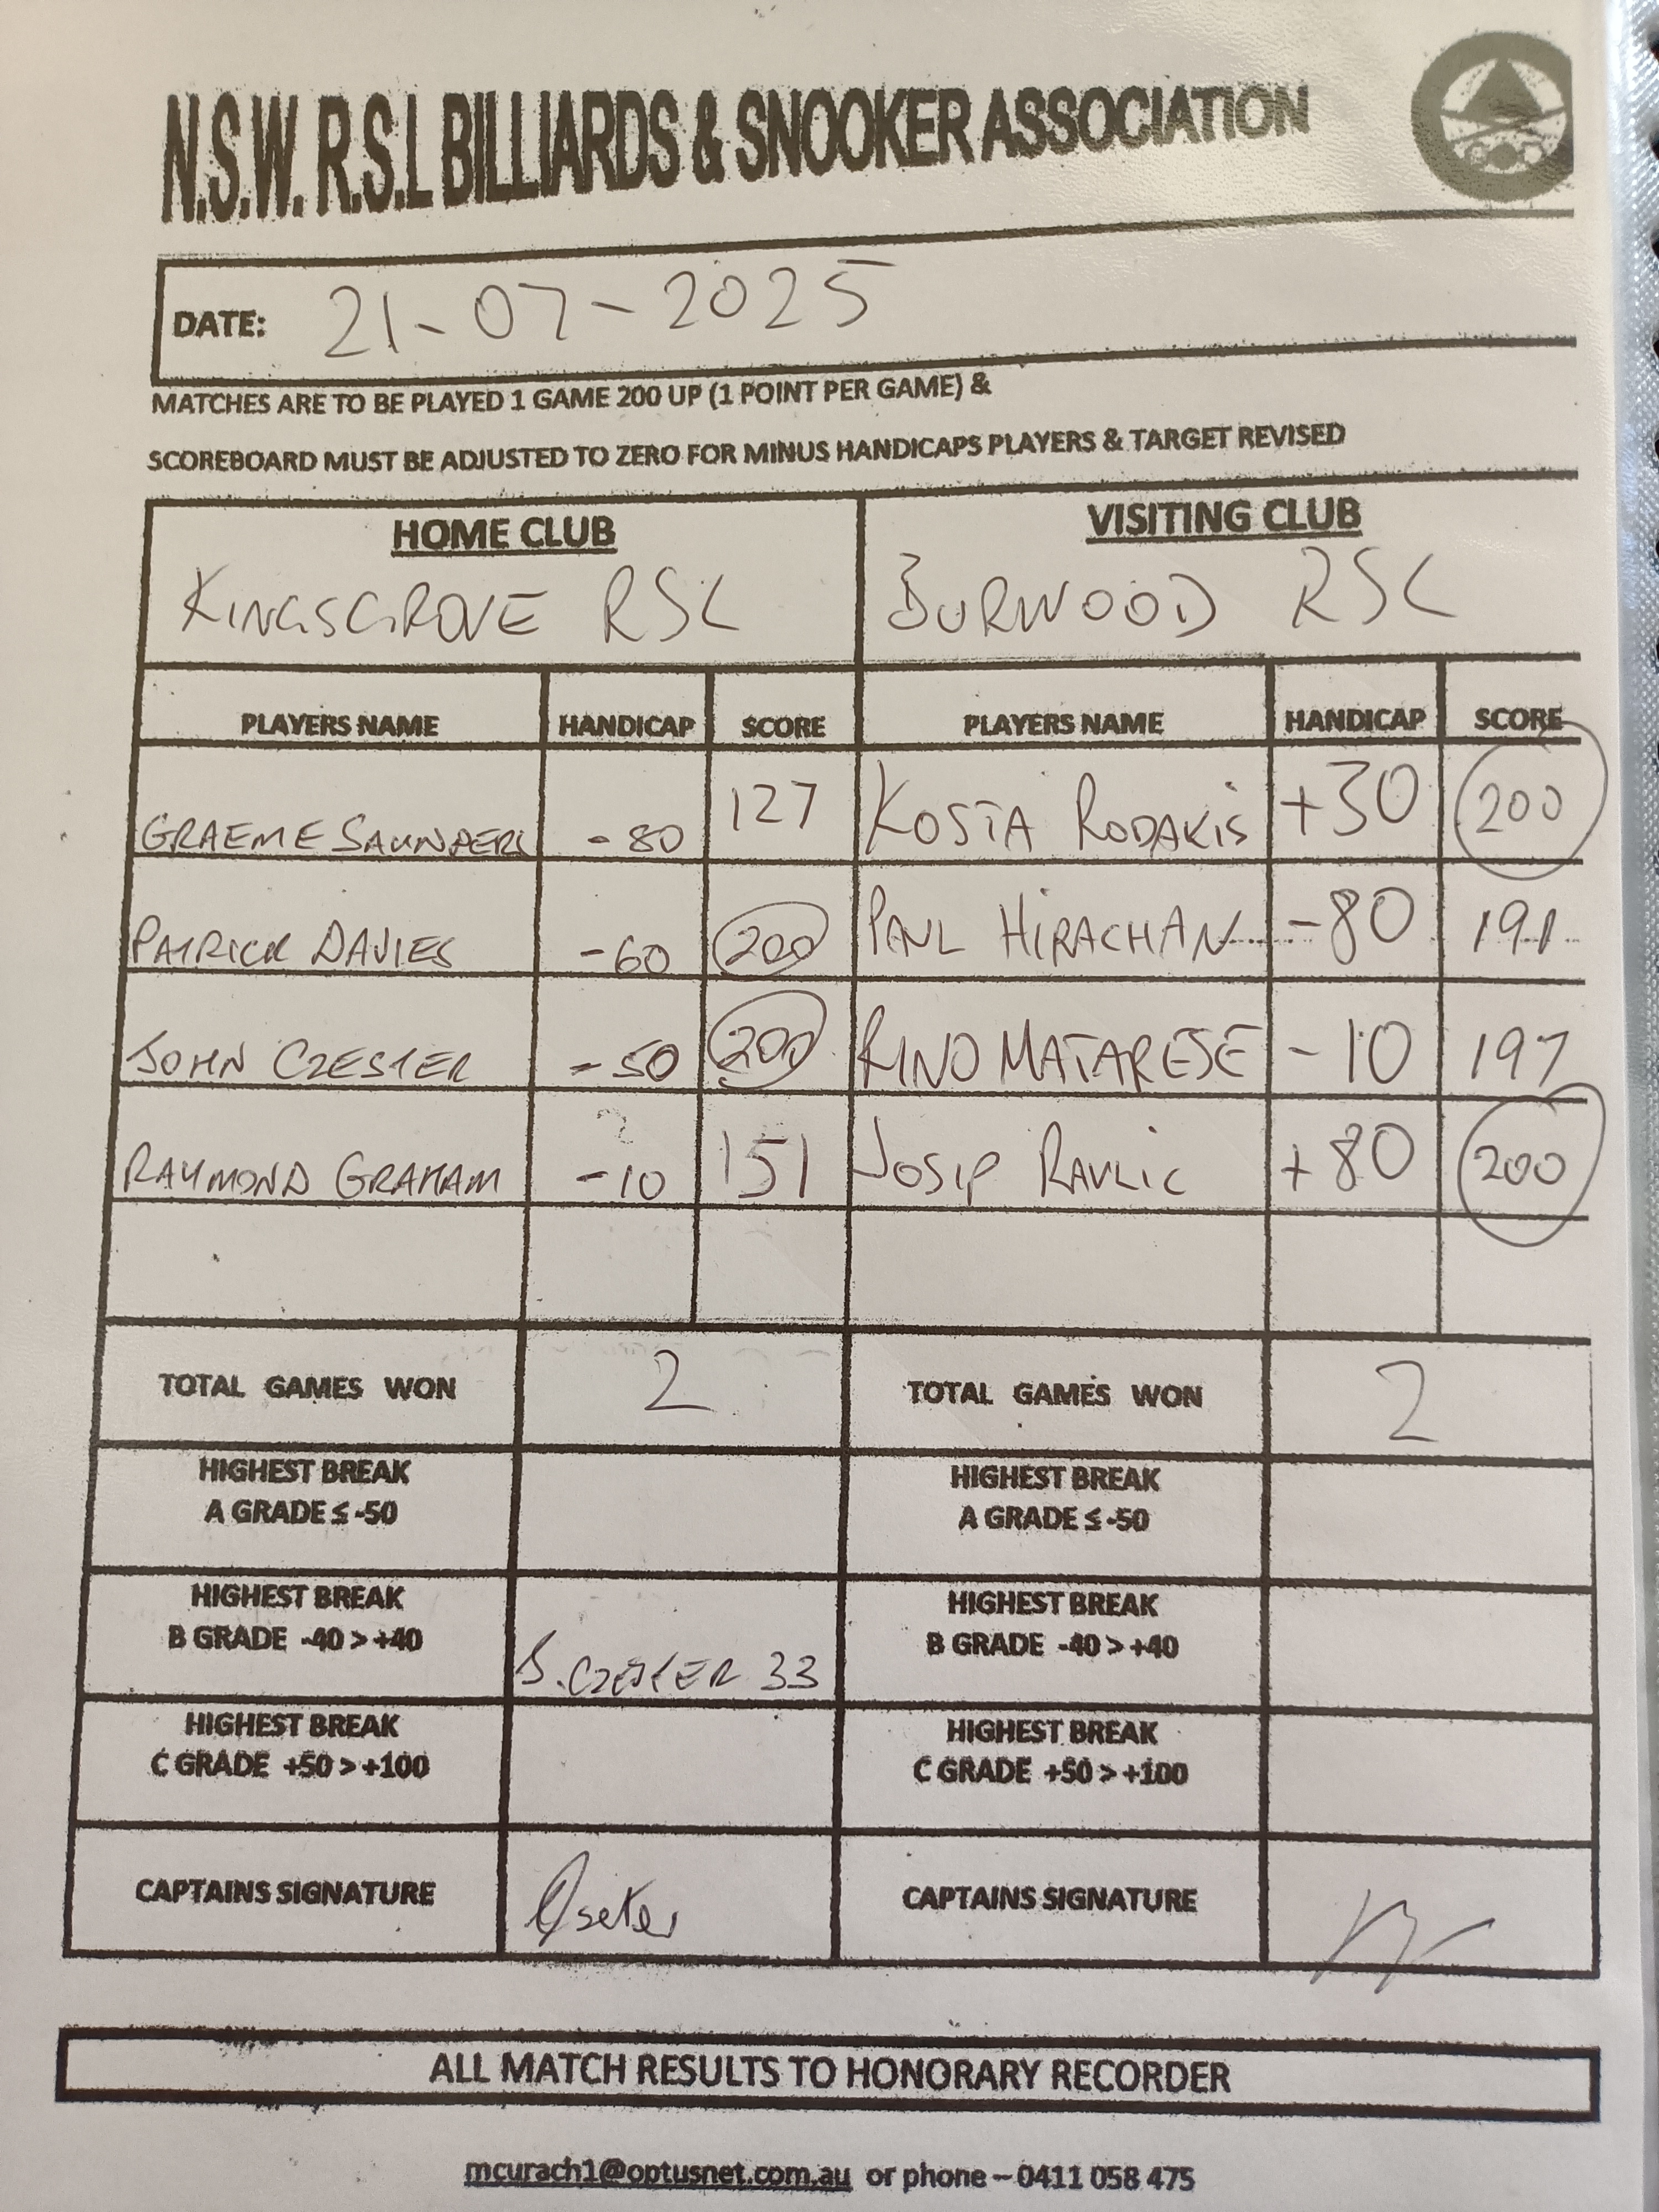 N.S.W. R.S.L BILLIARDS & SNOOKER ASSOCIATION
DATE: 21-07-2025
MATCHES ARE TO BE PLAYED 1 GAME 200 UP (1 POINT PER GAME) &
SCOREBOARD MUST BE ADJUSTED TO ZERO FOR MINUS HANDICAPS PLAYERS & TARGET REVISED
HOME CLUB VISITING CLUB
KINGSGROVE RSL BURWOOD RSL
PLAYERS NAME HANDICAP SCORE PLAYERS NAME HANDICAP SCORE
GRAEME SAUNDERS -80 127 KOSTA RODAKIS +30 200
PATRICK DAVIES -60 200 PAUL HIRACHAN -80 191
JOHN CZESTER -50 200 RINO MATARESE -10 197
RAYMOND GRAHAM -10 151 JOSIP RAVLIC +80 200
TOTAL GAMES WON 2 TOTAL GAMES WON 2
HIGHEST BREAK HIGHEST BREAK
A GRADE ≤ -50 A GRADE ≤ -50
HIGHEST BREAK HIGHEST BREAK
B GRADE -40 > +40 B GRADE -40 > +40
J. CZESTER 33
HIGHEST BREAK HIGHEST BREAK
C GRADE +50 > +100 C GRADE +50 > +100
CAPTAINS SIGNATURE CAPTAINS SIGNATURE
ALL MATCH RESULTS TO HONORARY RECORDER
mcurach1@optusnet.com.au or phone – 0411 058 475